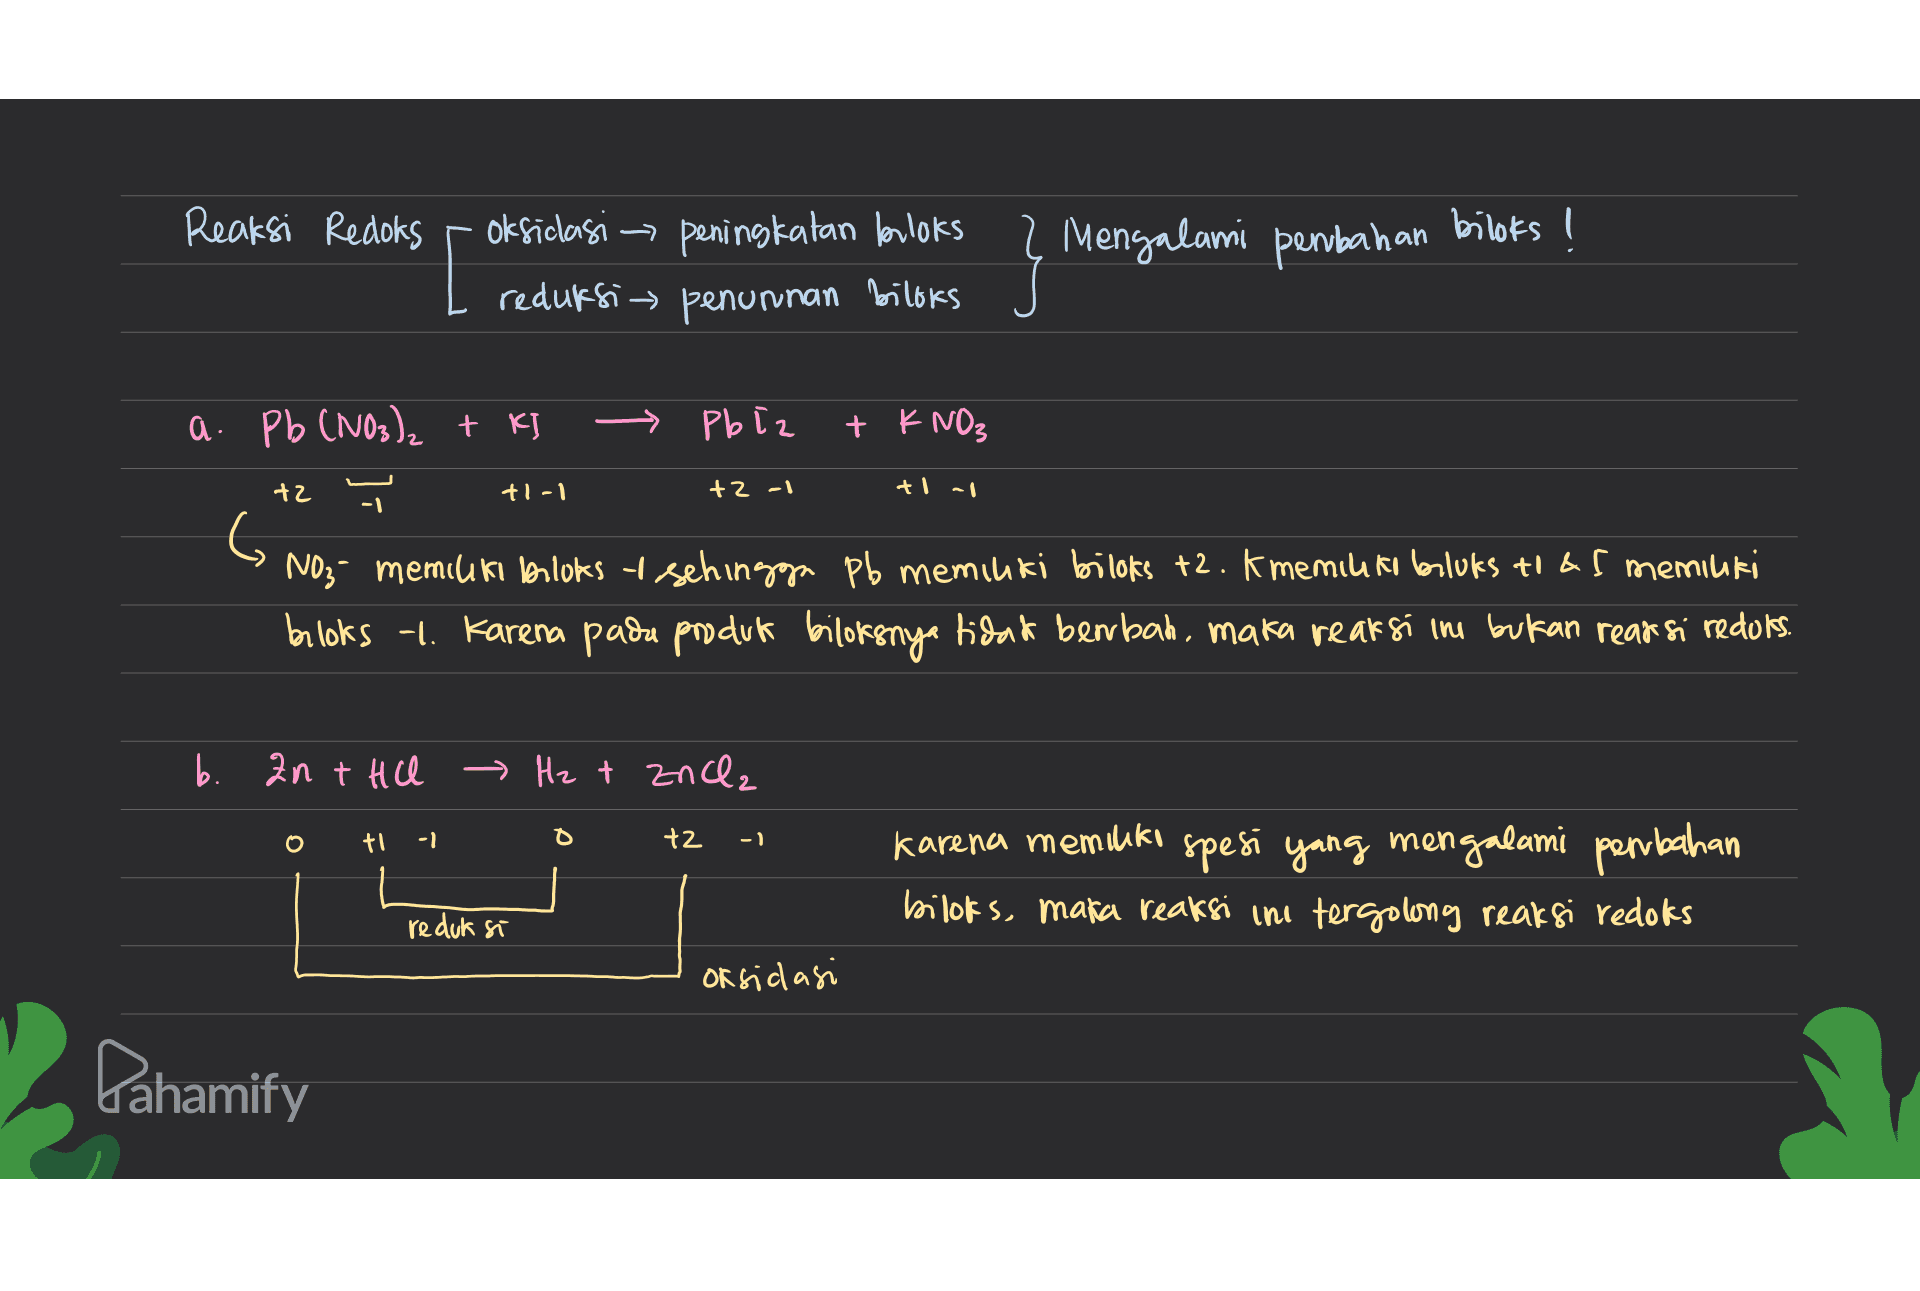 Reaksi Redoks oksidasi → peningkatan biloks } Mengalami perubahan biloks !
reduksi → penurunan biloks
a. Pb(NO₃)₂ + KI → PbI₂ + KNO₃
+2 -1 +1 -1 +2 -1 +1 -1
NO₃⁻ memiliki biloks -1 sehingga Pb memiliki biloks +2. K memiliki biloks +1 & I memiliki
biloks -1. Karena pada produk biloksnya tidak berubah, maka reaksi ini bukan reaksi redoks.
b. Zn + HCl → H₂ + ZnCl₂
0 +1 -1 0 +2 -1
reduksi
oksidasi
Karena memiliki spesi yang mengalami perubahan
biloks, maka reaksi ini tergolong reaksi redoks
Pahamify